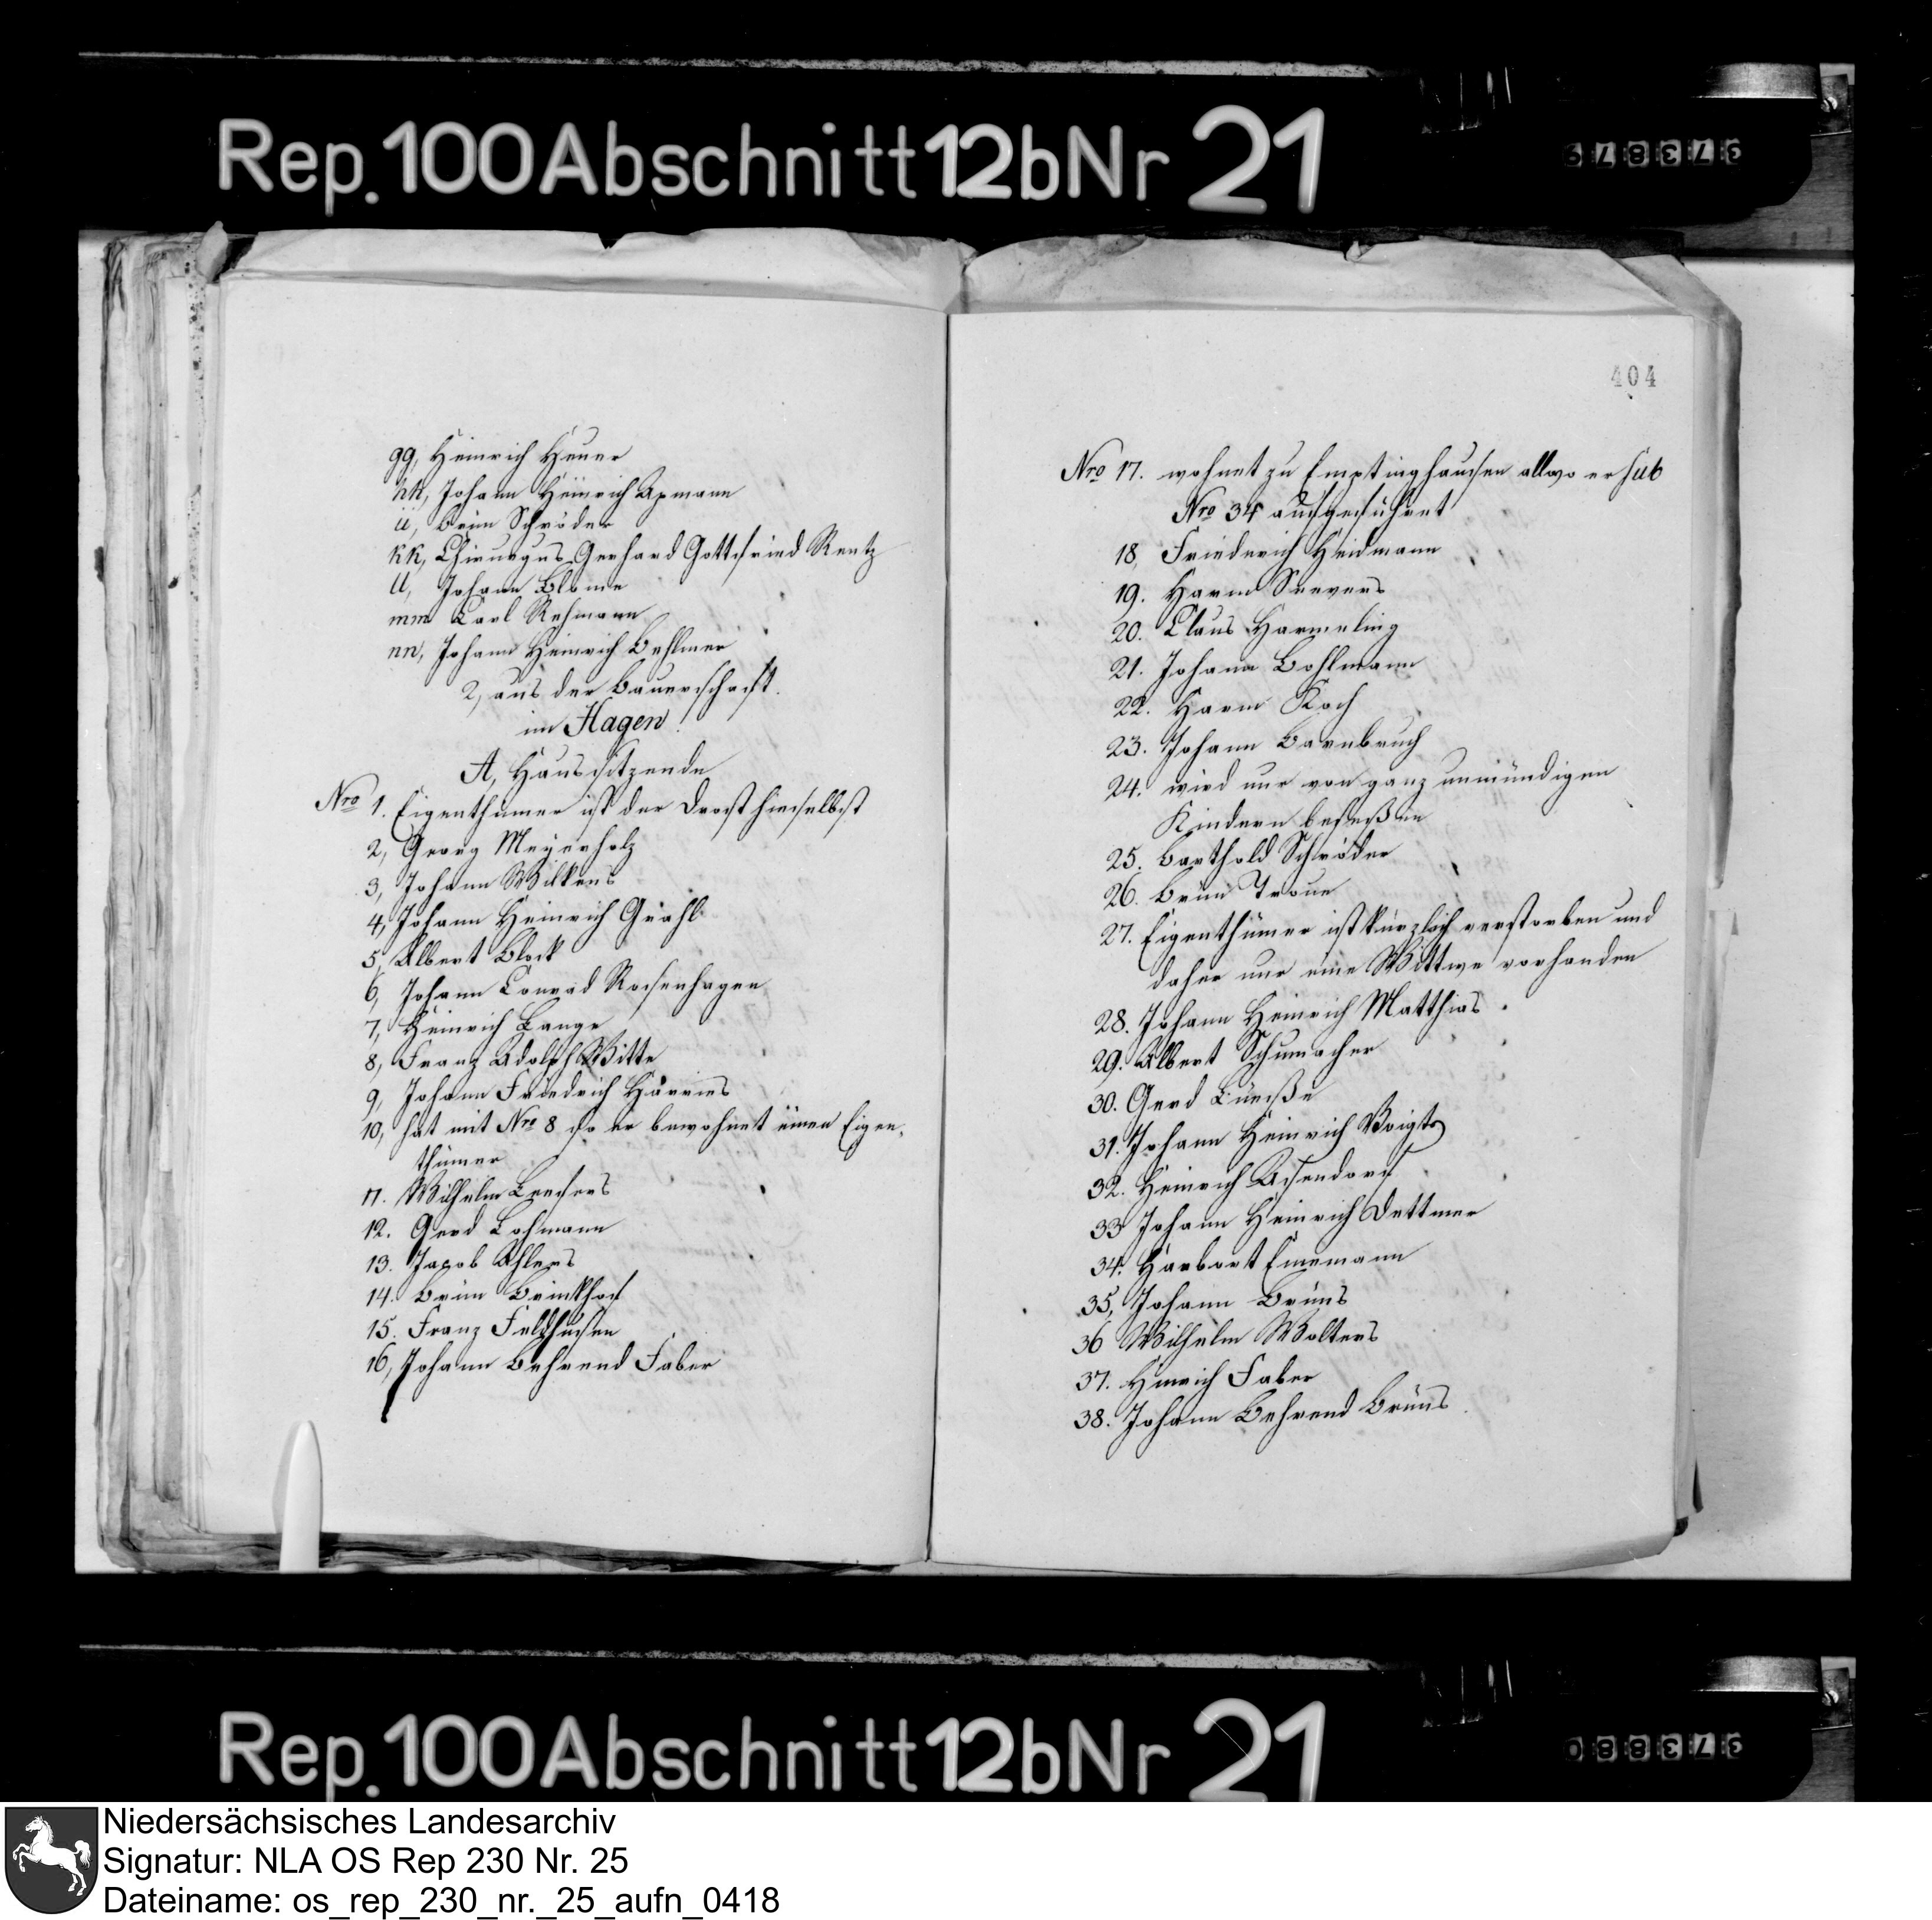 Rep.100Abschnitt12bNr 21
373879
gg, Heinrich Heuer
hh, Johann Heinrich Apmann
ii, Brün Schröder
kk, Chirurgus Gerhard Gottfried Rentz
ll, Johann Blome
mm Carl Rehmann
nn, Johann Heinrich Behlmer
2, aus der Bauerschaft
im Hagen.
A, Haussitzende
Nro 1. Eigenthümer ist der Drost hieselbst
2, Georg Meyerholz
3, Johann Wilkens
4, Johann Heinrich Grahl
5, Albert Block
6, Johann Conrad Rosenhagen
7, Heinrich Lange
8, Franz Adolph Witte
9, Johann Friedrich Harries
10, hat mit Nro 8 so er bewohnet einen Eigen-
thümer
11. Wilhelm
12. Gerd Lohmann
13. Jacob Ahlers
14. Brün Brinkhof
15. Franz Feldhusen
16, Johann Behrend Faber
404
Nro 17. wohnet zu Emptinghausen allwo er sub
Nro 34 aufgeführet
18, Friederich Heidmann
19. Harm Seevers
20. Claus Harmeling
21. Johann Bohlmann
22. Harm Koch
23. Johann Barnbruch
24. wird nur von ganz unmündigen
Kindern beseßen
25. Barthold Schröder
26. Brün Troue
27. Eigenthümer ist kürzlich verstorben und
daher nur eine Wittwe vorhanden
28. Johann Heinrich Matthias
29. Albert Schumacher
30. Gerd
31. Johann Heinrich Voigts
32. Heinrich Asendorf
33 Johann Heinrich Dettmer
34. Harbort
35, Johann Brüns
36 Wilhelm Wolters
37. Hinrich Faber
38. Johann Behrend Brüns
Rep.100Abschnitt12bNr 21
373880
Niedersächsisches Landesarchiv
Signatur: NLA OS Rep 230 Nr. 25
Dateiname: os_rep_230_nr._25_aufn_0418